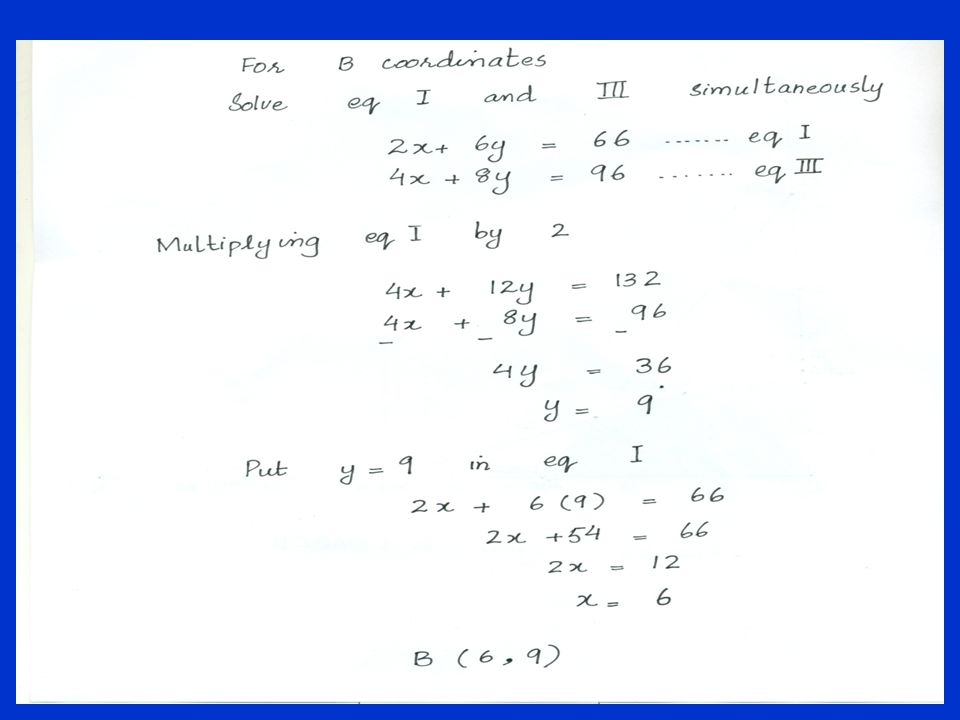 For B coordinates
Solve eq I and III simultaneously
2x + 6y = 66 ....... eq I
4x + 8y = 96 ....... eq III
Multiplying eq I by 2
4x + 12y = 132
4x + 8y = 96
− − −
4y = 36
y = 9
Put y = 9 in eq I
2x + 6(9) = 66
2x + 54 = 66
2x = 12
x = 6
B (6, 9)